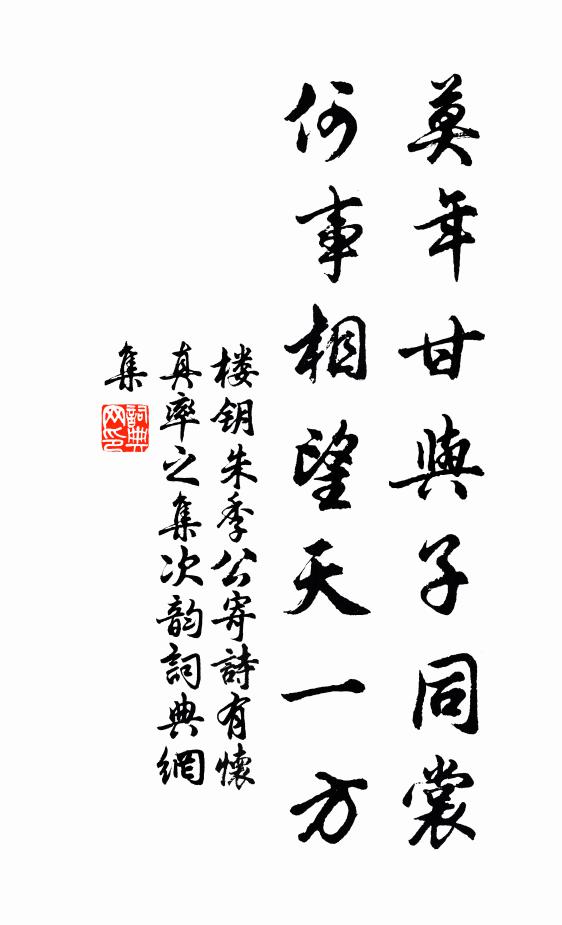 莫年甘與子同裳
何事相望天一方
楼钥朱季公寄詩有懷
真率之集次韵詞典網
集
詞典网印